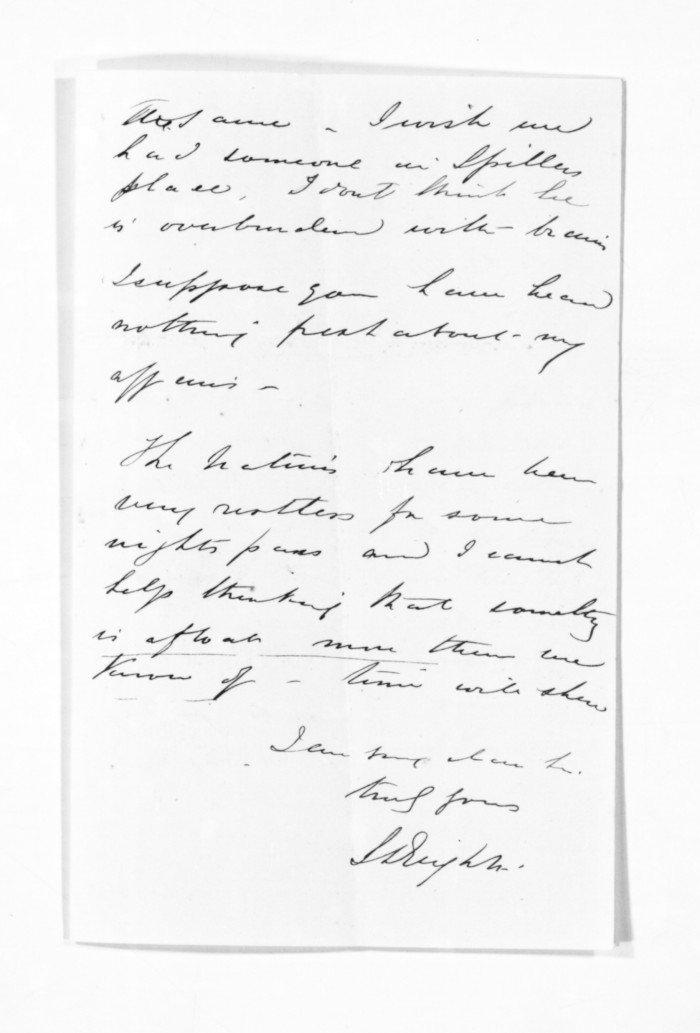 the same - I wish we
had someone in Spillers
place, I dont think he
is overburdened with brains
I suppose you have heard
nothing fresh about my
affairs -
The Natives have been
very restless for some
nights pass and I cannot
help thinking that something
is afloat more than we
know of - time will shew
I am my dear Sr.
truly yours